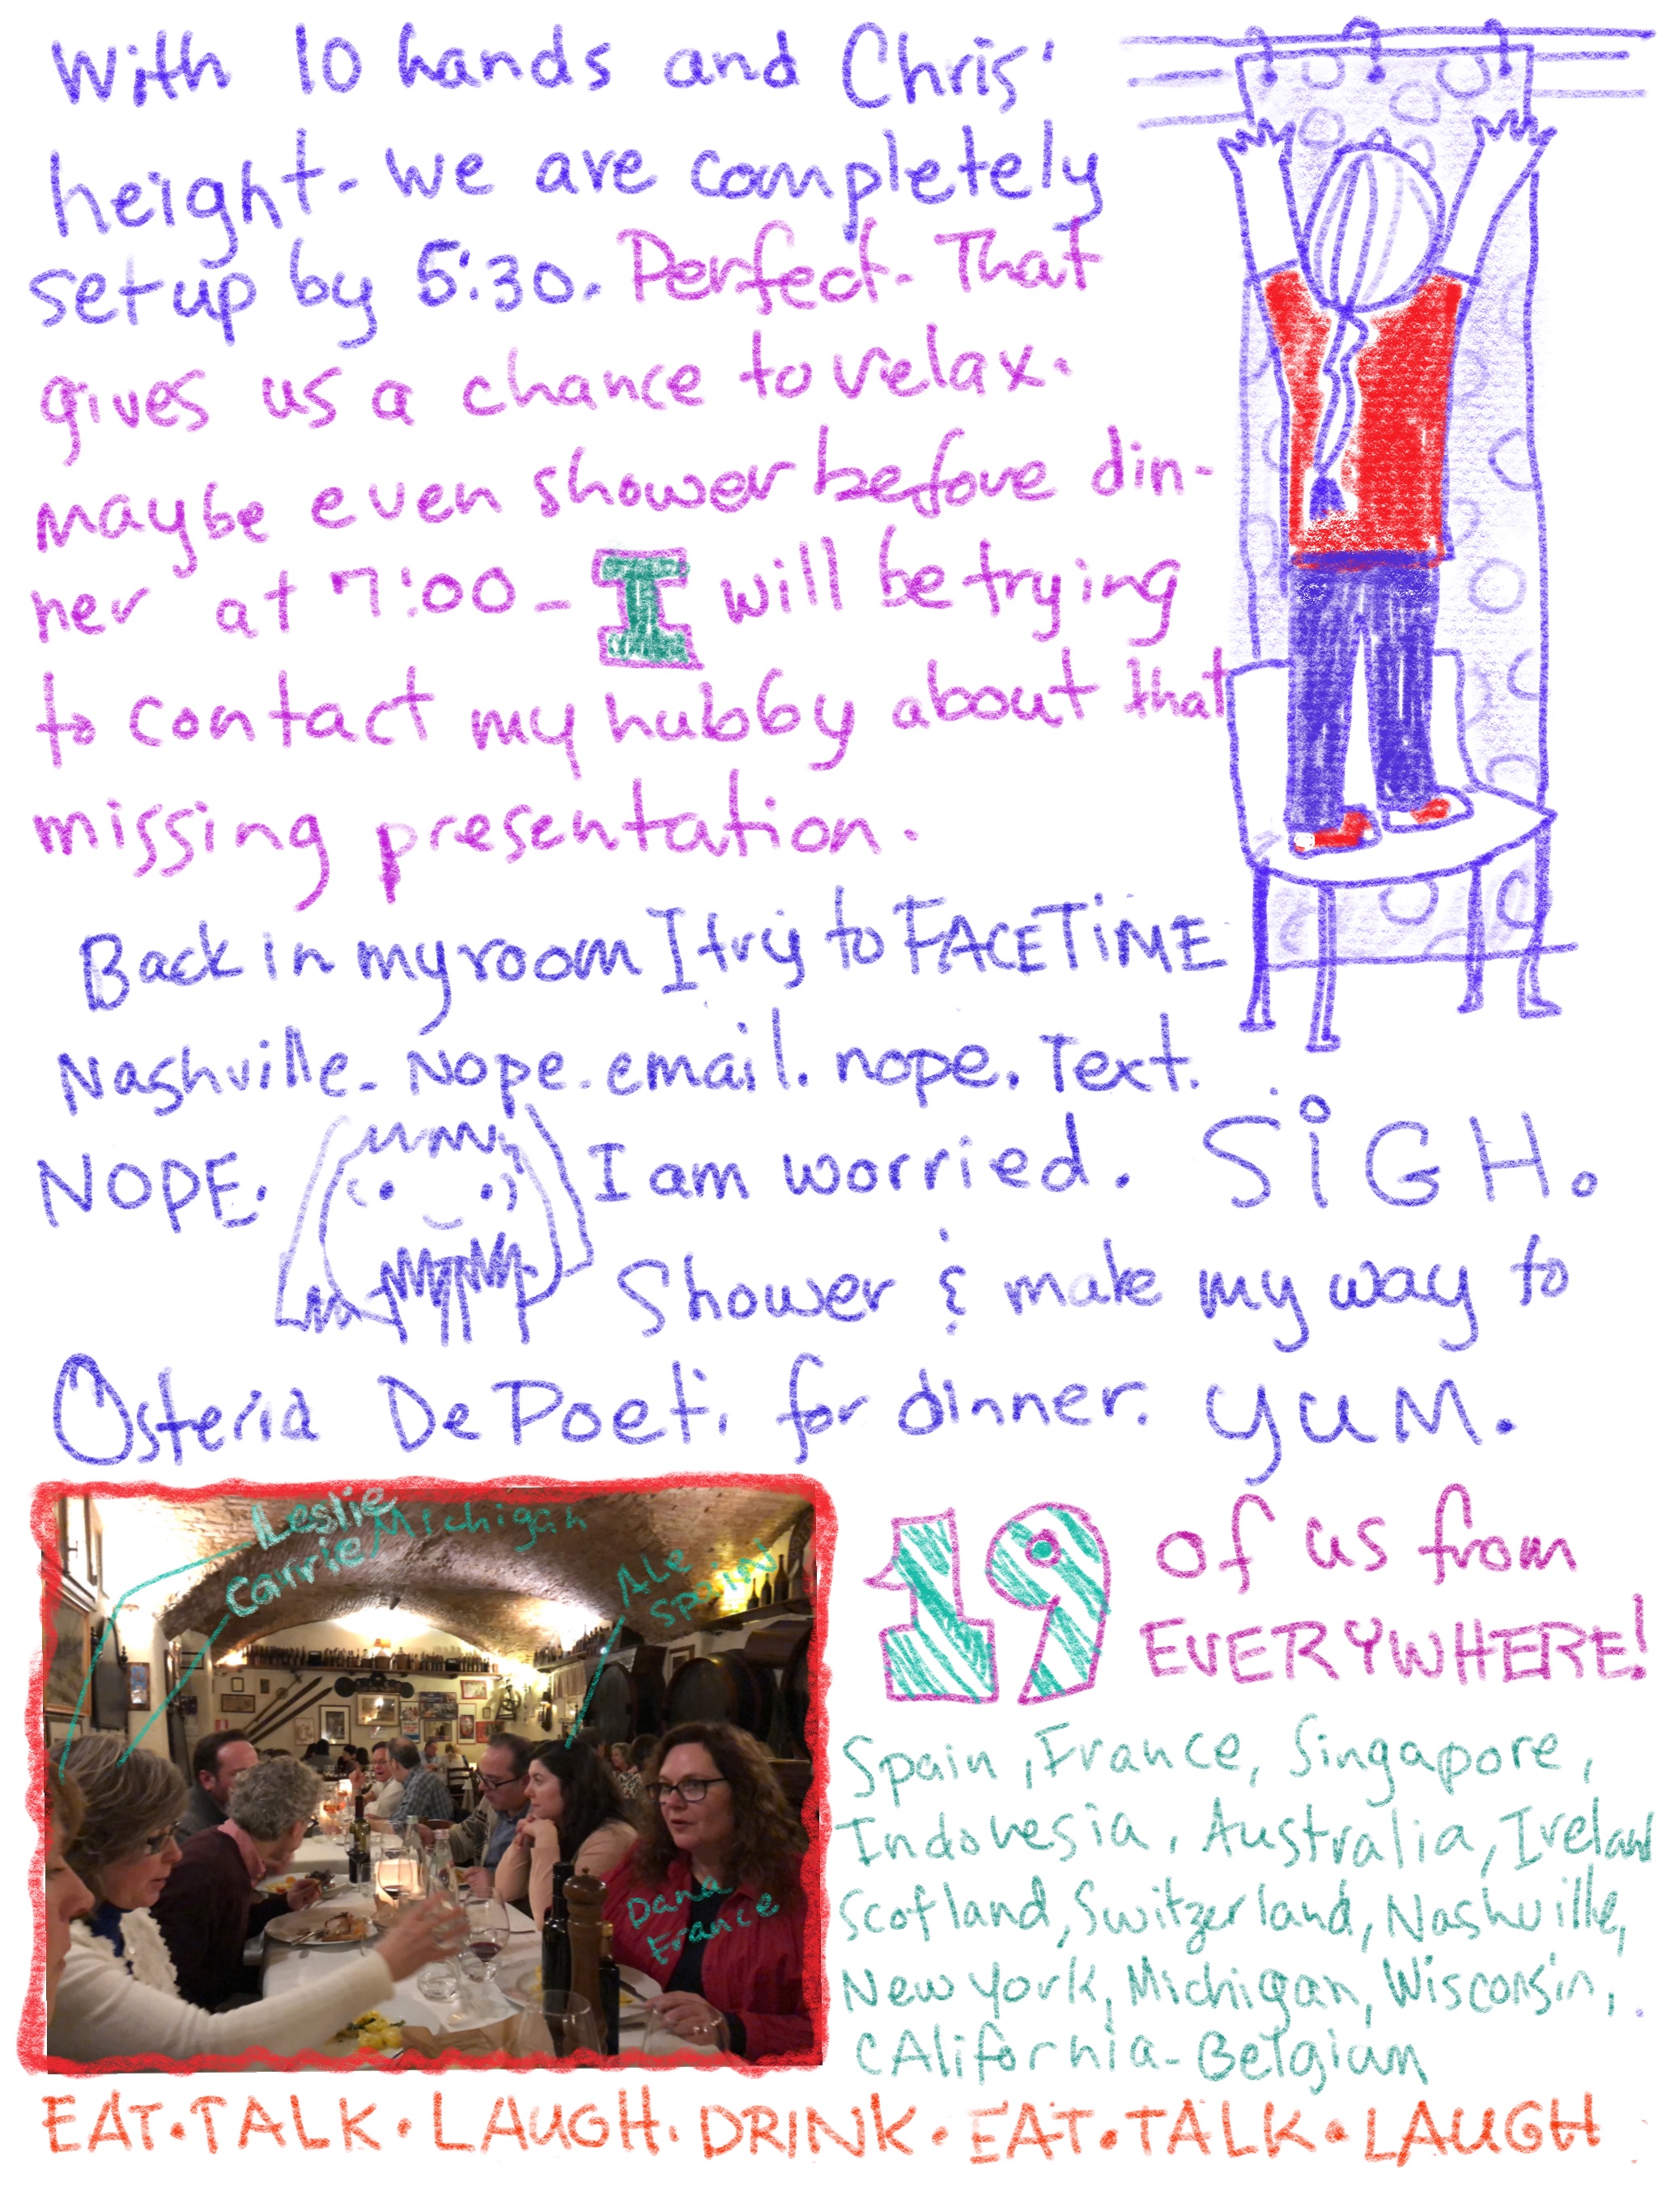 With 10 hands and Chris'
height - we are completely
set up by 5:30. Perfect. That
gives us a chance to relax.
maybe even shower before din-
ner at 7:00 - I will be trying
to contact my hubby about that
missing presentation.
Back in my room I try to FACETIME
Nashville - Nope. email. nope. Text.
NOPE. I am worried. SiGH.
Shower & make my way to
Osteria De Poeti. for dinner. YUM.
Leslie
Carrie, Michigan
Ale
Spain
Dana
France
19 of us from
EVERYWHERE!
Spain, France, Singapore,
Indonesia, Australia, Ireland
Scotland, Switzerland, Nashville,
New York, Michigan, Wisconsin,
CAlifornia - Belgian
EAT • TALK • LAUGH • DRINK • EAT • TALK • LAUGH